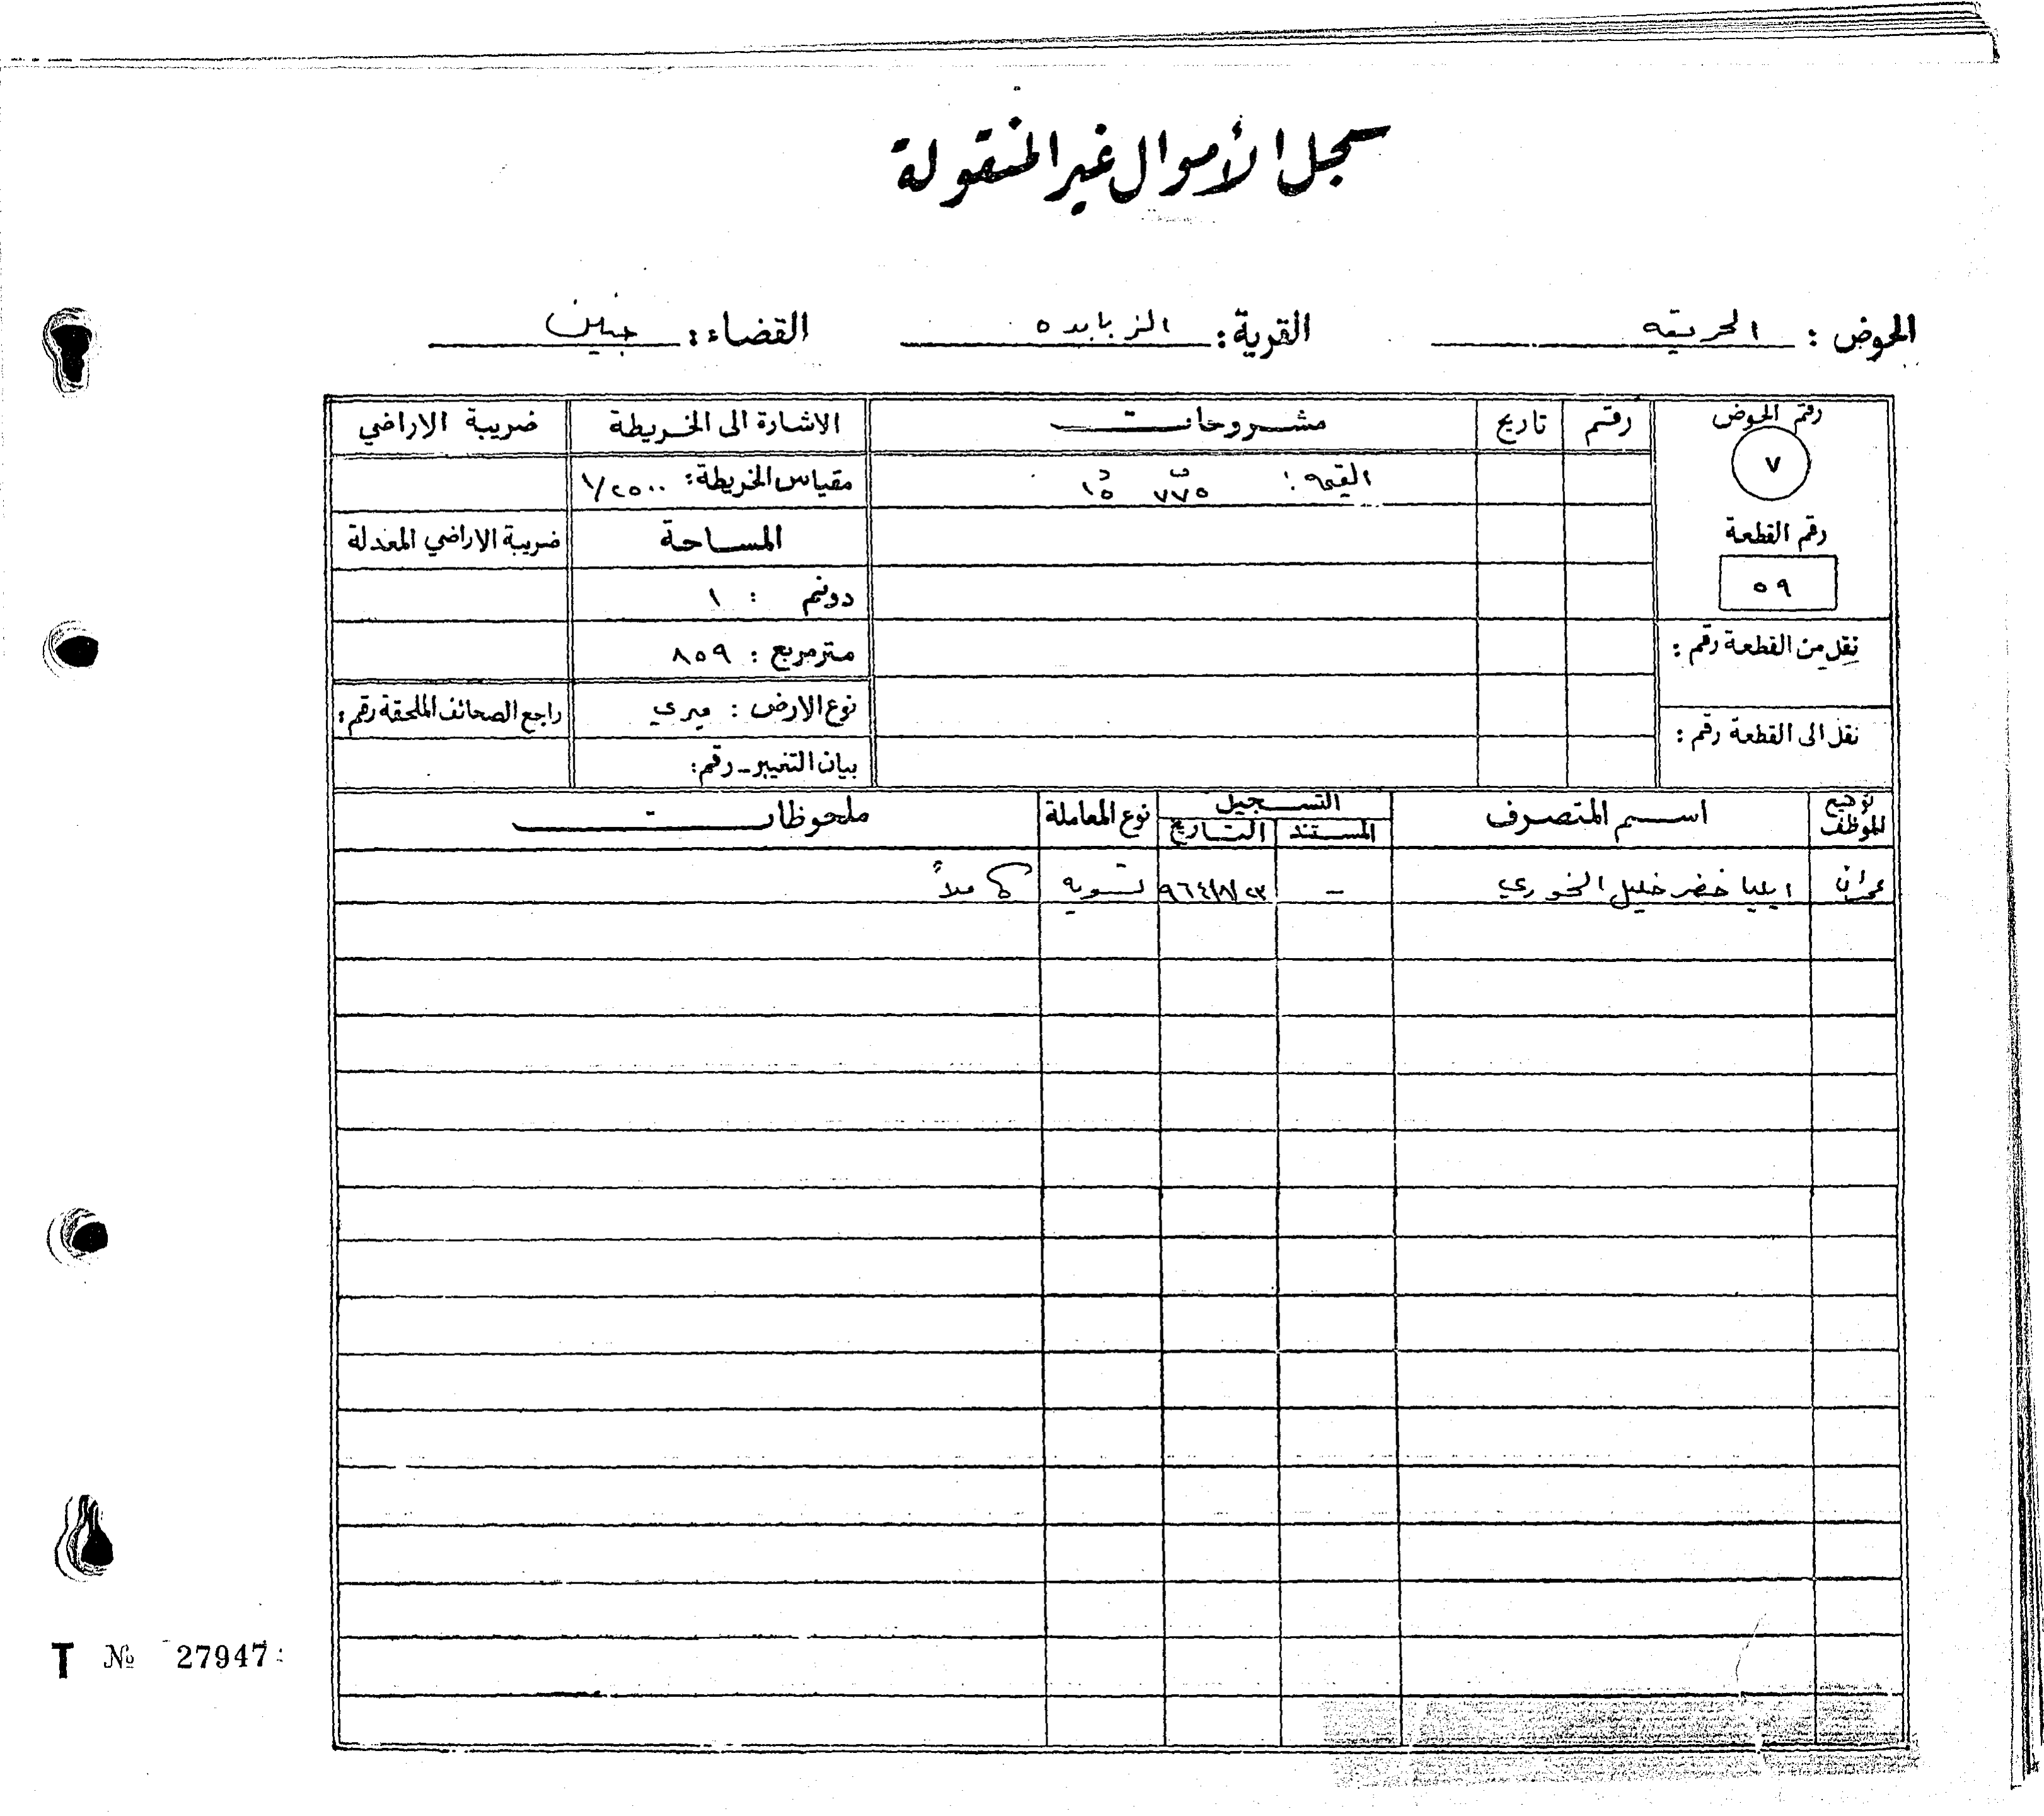 سجل الأموال غير المنقولة
الحوض : الحريقه القرية : الزبابده القضاء : جنين
رقم الحوض رقم تاريخ مشروحات الاشارة الى الخريطة ضريبة الاراضي
٧ القيمه : ٧٧٥ ف ١٥ د مقياس الخريطة : ١/٢٥٠٠
رقم القطعة المساحة ضريبة الاراضي المعدلة
٥٩ دونم : ١
نقل من القطعة رقم : متر مربع : ٨٥٩
نوع الارض : ميري راجع الصحائف الملحقة رقم :
نقل الى القطعة رقم : بيان التغيير - رقم :
توقيع الموظف اسم المتصرف التسجيل نوع المعاملة ملحوظات
المستند التاريخ
عمران ايليا خضر خليل الخوري - ٩٦٤/٨/٢٣ تسويه كاملاً
T № 27947